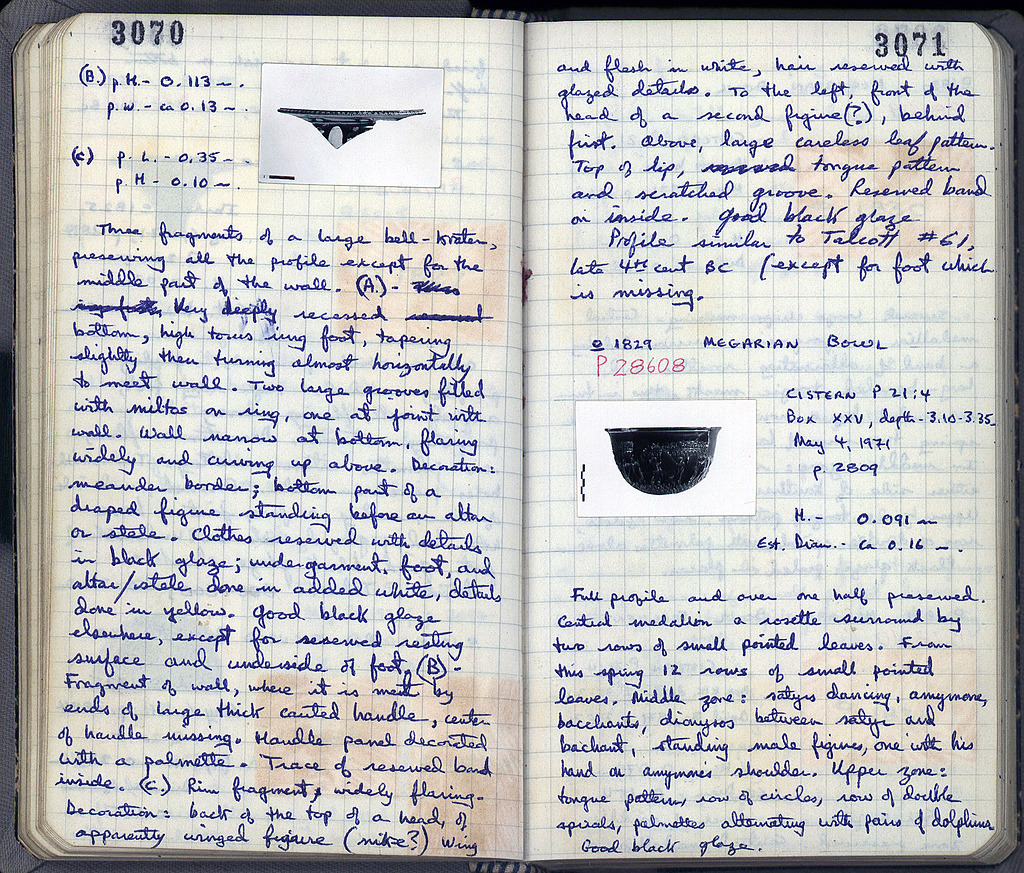 3070
(B.) p.H. - 0.113 m.
p.w. - ca 0.13 m.
(C) p. L. - 0.35 m.
p. H - 0.10 m.
Three fragments of a large bell-krater,
preserving all the profile except for the
middle part of the wall. (A.) -
Very deeply recessed
bottom, high torus ring foot, tapering
slightly then turning almost horizontally
to meet wall. Two large grooves filled
with miltos on ring, one at joint with
wall. Wall narrow at bottom, flaring
widely and curving up above. Decoration:
meander border; bottom part of a
draped figure standing before an altar
or stele. Clothes reserved with details
in black glaze; undergarment, foot, and
altar/stele done in added white, details
done in yellow. Good black glaze
elsewhere, except for reserved resting
surface and underside of foot. (B) -
Fragment of wall, where it is met by
ends of large thick canted handle, center
of handle missing. Handle panel decorated
with a palmette. Trace of reserved band
inside. (C.) Rim fragment, widely flaring.
Decoration: back of the top of a head, of
apparently winged figure (nike?) Wing
3071
and flesh in white, hair reserved with
glazed details. To the left, front of the
head of a second figure(?), behind
first. Above, large careless leaf pattern.
Top of lip, tongue pattern
and scratched groove. Reserved band
on inside. Good black glaze
Profile similar to Talcott #61,
late 4th cent BC (except for foot which
is missing.
1829 MEGARIAN BOWL
P 28608
CISTERN P 21:4
Box XXV, depth - 3.10-3.35
May 4, 1971
p. 2809
H. - 0.091 m
Est. Diam. - ca 0.16 m.
Full profile and over one half preserved.
Central medalion a rosette surround by
two rows of small pointed leaves. From
this spring 12 rows of small pointed
leaves. Middle zone: satyrs dancing, amymone,
bacchants, dionysos between satyr and
bachant, standing male figures, one with his
hand on amymone's shoulder. Upper zone:
tongue pattern, row of circles, row of double
spirals, palmettes alternating with pairs of dolphins
Good black glaze.